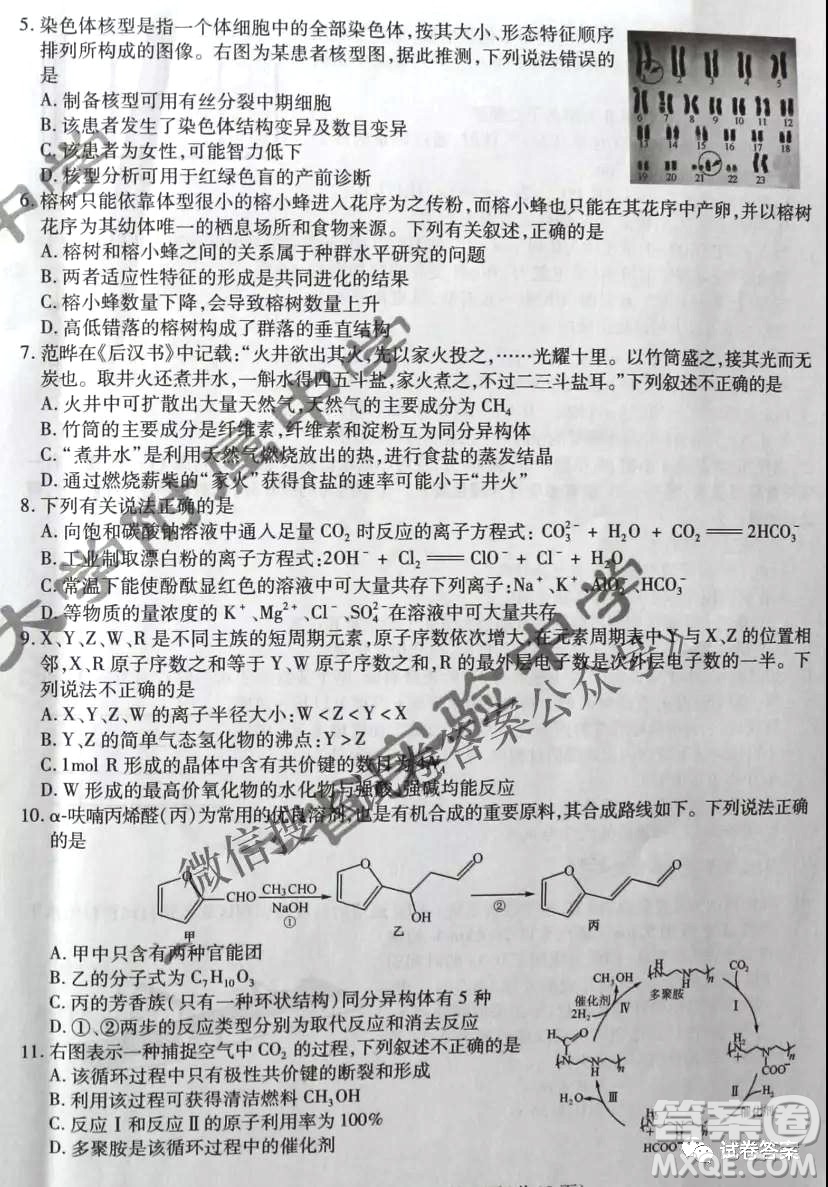 5. 染色体核型是指一个体细胞中的全部染色体，按其大小、形态特征顺序
排列所构成的图像。右图为某患者核型图，据此推测，下列说法错误的
是
A. 制备核型可用有丝分裂中期细胞
B. 该患者发生了染色体结构变异及数目变异
C. 该患者为女性，可能智力低下
D. 核型分析可用于红绿色盲的产前诊断
2 3 4 5
6 7 8 9 10 11 12
13 14 15 16 17 18
19 20 21 22 23
6. 榕树只能依靠体型很小的榕小蜂进入花序为之传粉，而榕小蜂也只能在其花序中产卵，并以榕树
花序为其幼体唯一的栖息场所和食物来源。下列有关叙述，正确的是
A. 榕树和榕小蜂之间的关系属于种群水平研究的问题
B. 两者适应性特征的形成是共同进化的结果
C. 榕小蜂数量下降，会导致榕树数量上升
D. 高低错落的榕树构成了群落的垂直结构
7. 范晔在《后汉书》中记载：“火井欲出其火，先以家火投之，……光耀十里。以竹筒盛之，接其光而无
炭也。取井火还煮井水，一斛水得四五斗盐，家火煮之，不过二三斗盐耳。”下列叙述不正确的是
A. 火井中可扩散出大量天然气，天然气的主要成分为 CH₄
B. 竹筒的主要成分是纤维素，纤维素和淀粉互为同分异构体
C. “煮井水”是利用天然气燃烧放出的热，进行食盐的蒸发结晶
D. 通过燃烧薪柴的“家火”获得食盐的速率可能小于“井火”
8. 下列有关说法正确的是
A. 向饱和碳酸钠溶液中通入足量 CO₂ 时反应的离子方程式：CO₃²⁻ + H₂O + CO₂ ══ 2HCO₃⁻
B. 工业制取漂白粉的离子方程式：2OH⁻ + Cl₂ ══ ClO⁻ + Cl⁻ + H₂O
C. 常温下能使酚酞显红色的溶液中可大量共存下列离子：Na⁺、K⁺、AlO₂⁻、HCO₃⁻
D. 等物质的量浓度的 K⁺、Mg²⁺、Cl⁻、SO₄²⁻在溶液中可大量共存
9. X、Y、Z、W、R 是不同主族的短周期元素，原子序数依次增大，在元素周期表中 Y 与 X、Z 的位置相
邻，X、R 原子序数之和等于 Y、W 原子序数之和，R 的最外层电子数是次外层电子数的一半。下
列说法不正确的是
A. X、Y、Z、W 的离子半径大小：W＜Z＜Y＜X
B. Y、Z 的简单气态氢化物的沸点：Y＞Z
C. 1mol R 形成的晶体中含有共价键的数目为
D. W 形成的最高价氧化物的水化物与强酸、强碱均能反应
10. α-呋喃丙烯醛（丙）为常用的优良溶剂，也是有机合成的重要原料，其合成路线如下。下列说法正确
的是
O CHO CH₃CHO NaOH ① O OH O ② O O
甲 乙 丙
A. 甲中只含有两种官能团
B. 乙的分子式为 C₇H₁₀O₃
C. 丙的芳香族（只有一种环状结构）同分异构体有 5 种
D. ①、②两步的反应类型分别为取代反应和消去反应
11. 右图表示一种捕捉空气中 CO₂ 的过程，下列叙述不正确的是
A. 该循环过程中只有极性共价键的断裂和形成
B. 利用该过程可获得清洁燃料 CH₃OH
C. 反应Ⅰ和反应Ⅱ的原子利用率为 100%
D. 多聚胺是该循环过程中的催化剂
CH₃OH
多聚胺
CO₂
催化剂
2H₂
Ⅳ
Ⅰ
COO⁻
H₂O
Ⅲ
Ⅱ
H₂
催化剂
HCOO⁻
中学
大学附属中学
省实验中学
微信搜《试卷答案公众号》
答案圈
试卷答案
MXQE.COM